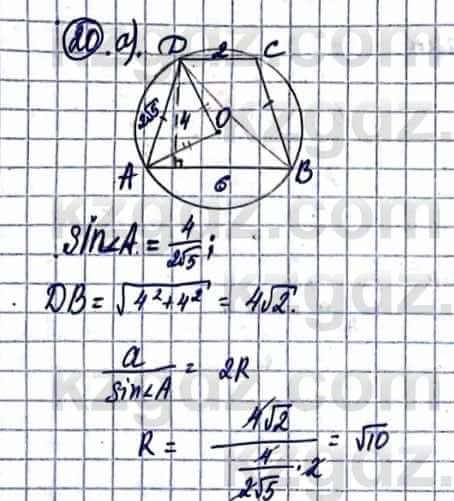 20. а).
D 2 C
2√5 4 O
4
A B
6
sin∠A = 4/(2√5);
DB = √(4²+4²) = 4√2.
a/(sin∠A) = 2R
R = (4√2)/((4/(2√5))·2) = √10
kzgdz.com